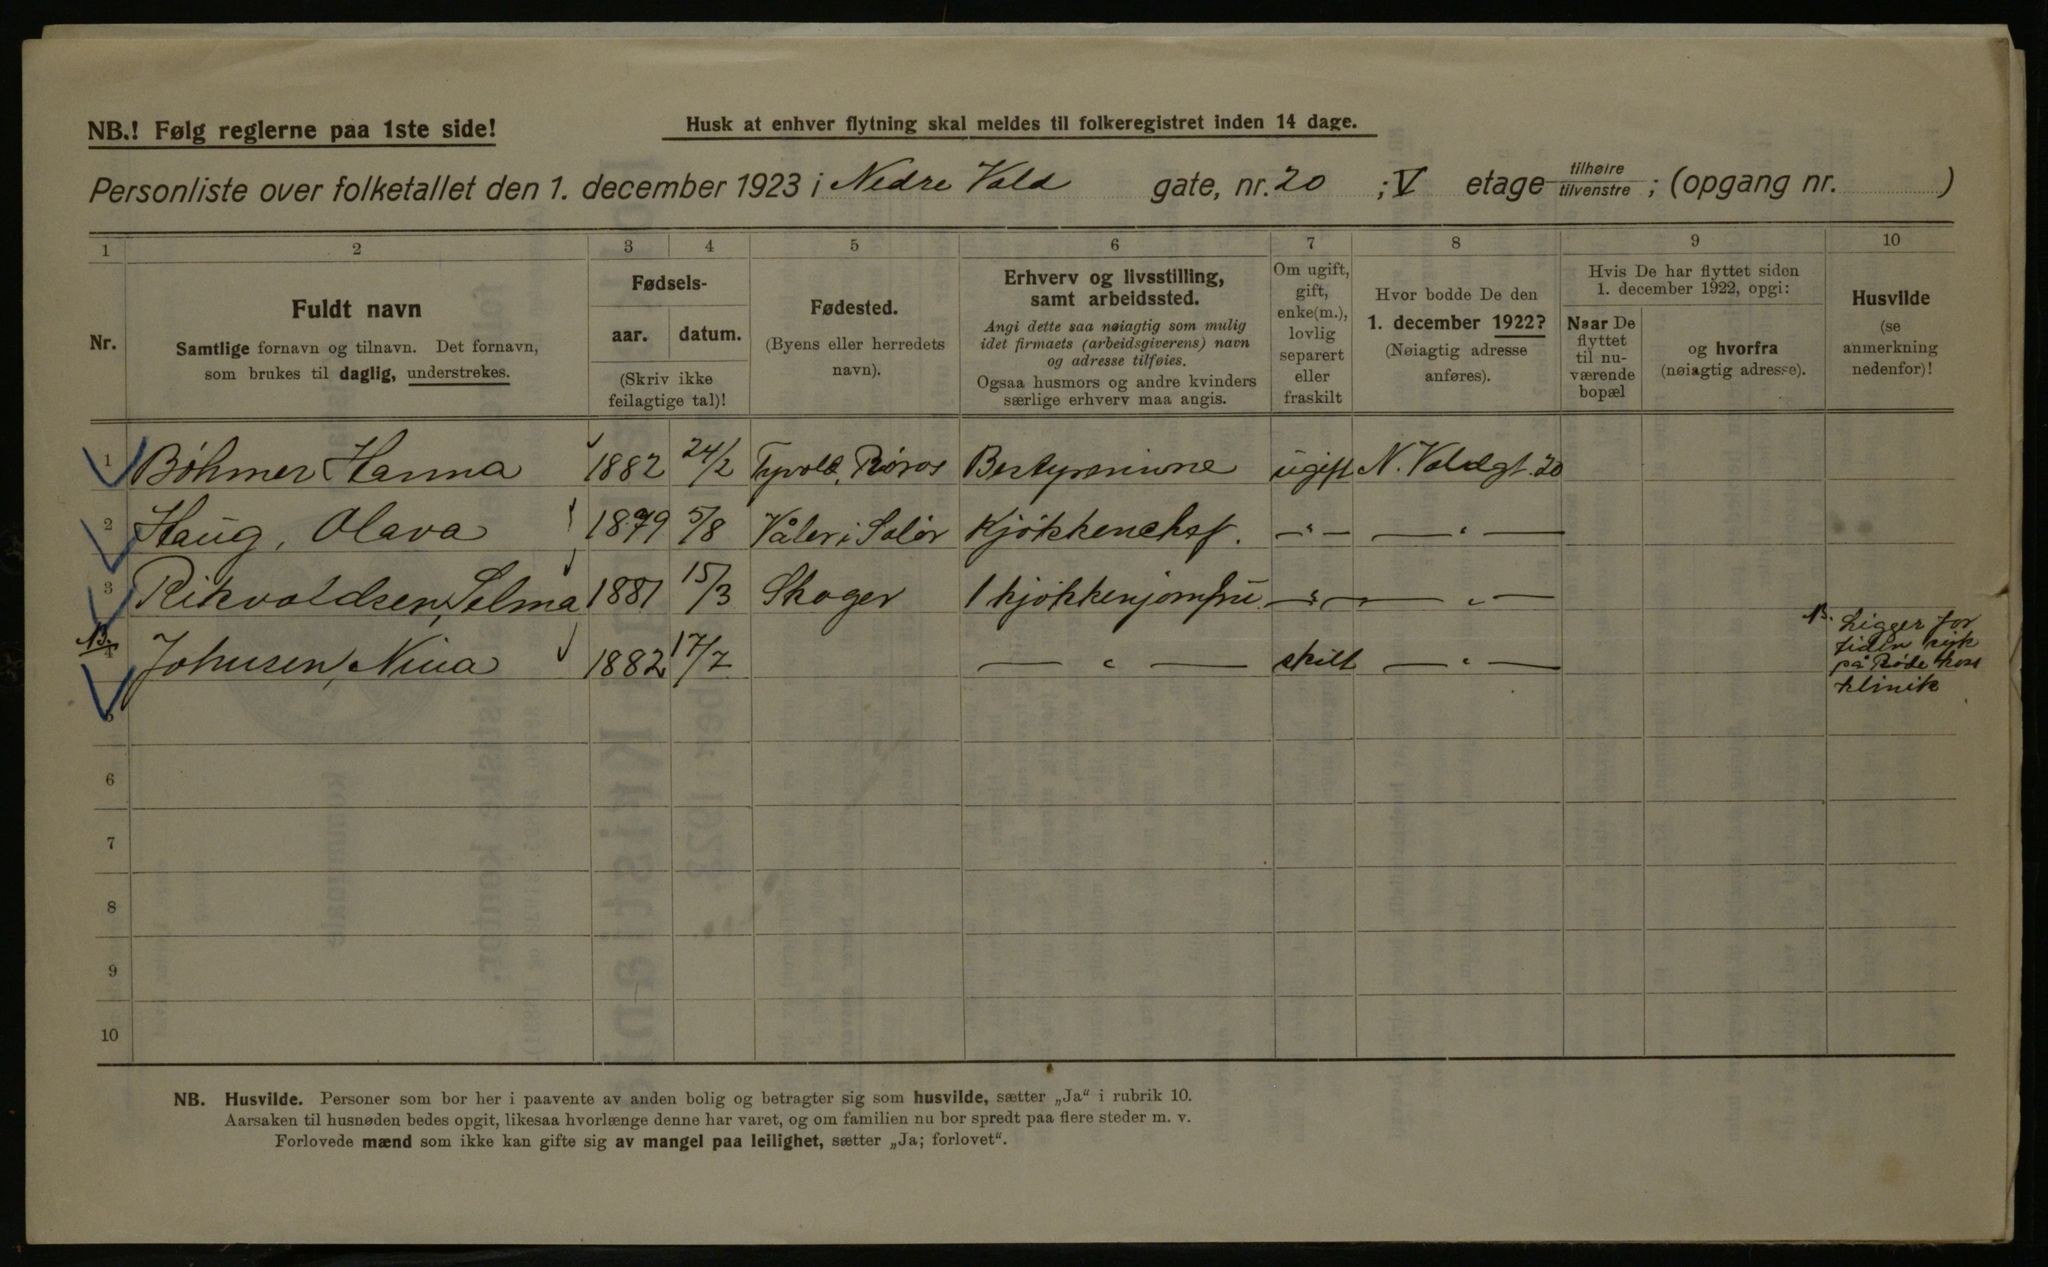 NB.! Følg reglerne paa 1ste side!
Husk at enhver flytning skal meldes til folkeregistret inden 14 dage.
Personliste over folketallet den 1. december 1923 i Nedre Vold gate, nr. 20 ; V etage tilhøire tilvenstre ; (opgang nr. )
1 2 3 4 5 6 7 8 9 10
Nr.
Fuldt navn
Samtlige fornavn og tilnavn. Det fornavn,
som brukes til daglig, understrekes.
Fødsels-
aar. datum.
(Skriv ikke
feilagtige tal)!
Fødested.
(Byens eller herredets
navn).
Erhverv og livsstilling,
samt arbeidssted.
Angi dette saa nøiagtig som mulig
idet firmaets (arbeidsgiverens) navn
og adresse tilføies.
Ogsaa husmors og andre kvinders
særlige erhverv maa angis.
Om ugift,
gift,
enke(m.),
lovlig
separert
eller
fraskilt
Hvor bodde De den
1. december 1922?
(Nøiagtig adresse
anføres).
Hvis De har flyttet siden
1. december 1922, opgi:
Naar De
flyttet
til nu-
værende
bopæl
og hvorfra
(nøiagtig adresse).
Husvilde
(se
anmerkning
nedenfor)!
1 Bøhmer Hanna 1882 24/2 Tyvold, Røros Bestyrerinne ugift N. Voldgt. 20
2 Haug, Olava 1879 5/8 Våler i Solør Kjøkkenchef. — " — — " —
3 Rikvoldsen, Selma 1881 15/3 Skoger 1 kjøkkenjomfru — " — — " —
NB. 4 Johnsen, Nina 1882 17/7 — " — skilt — " —
NB. Ligger for
tiden syk
på Røde kors
klinik
5
6
7
8
9
10
NB. Husvilde. Personer som bor her i paavente av anden bolig og betragter sig som husvilde, sætter „Ja“ i rubrik 10.
Aarsaken til husnøden bedes opgit, likesaa hvorlænge denne har varet, og om familien nu bor spredt paa flere steder m. v.
Forlovede mænd som ikke kan gifte sig av mangel paa leilighet, sætter „Ja; forlovet“.